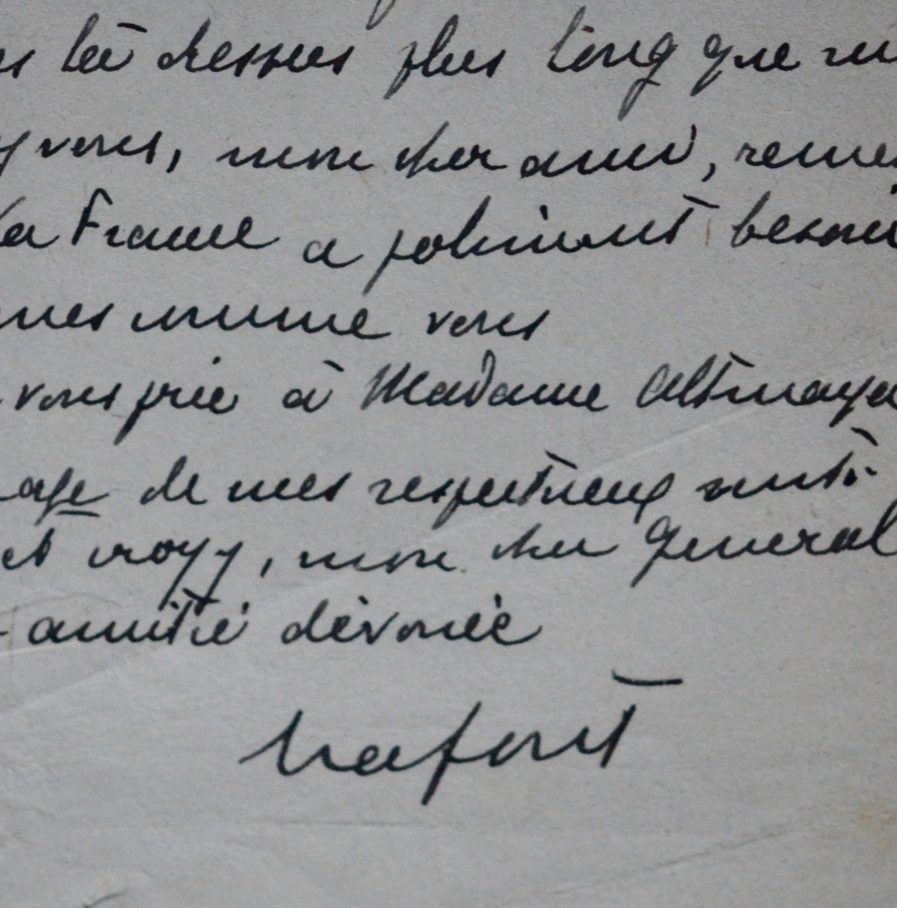 là dessus plus long que
vous, mon cher ami,
la France a joliment besoin
comme vous
vous prie à Madame Altmayer
de mes respectueux
et croyez, mon cher Général
amitié dévouée
Lafont